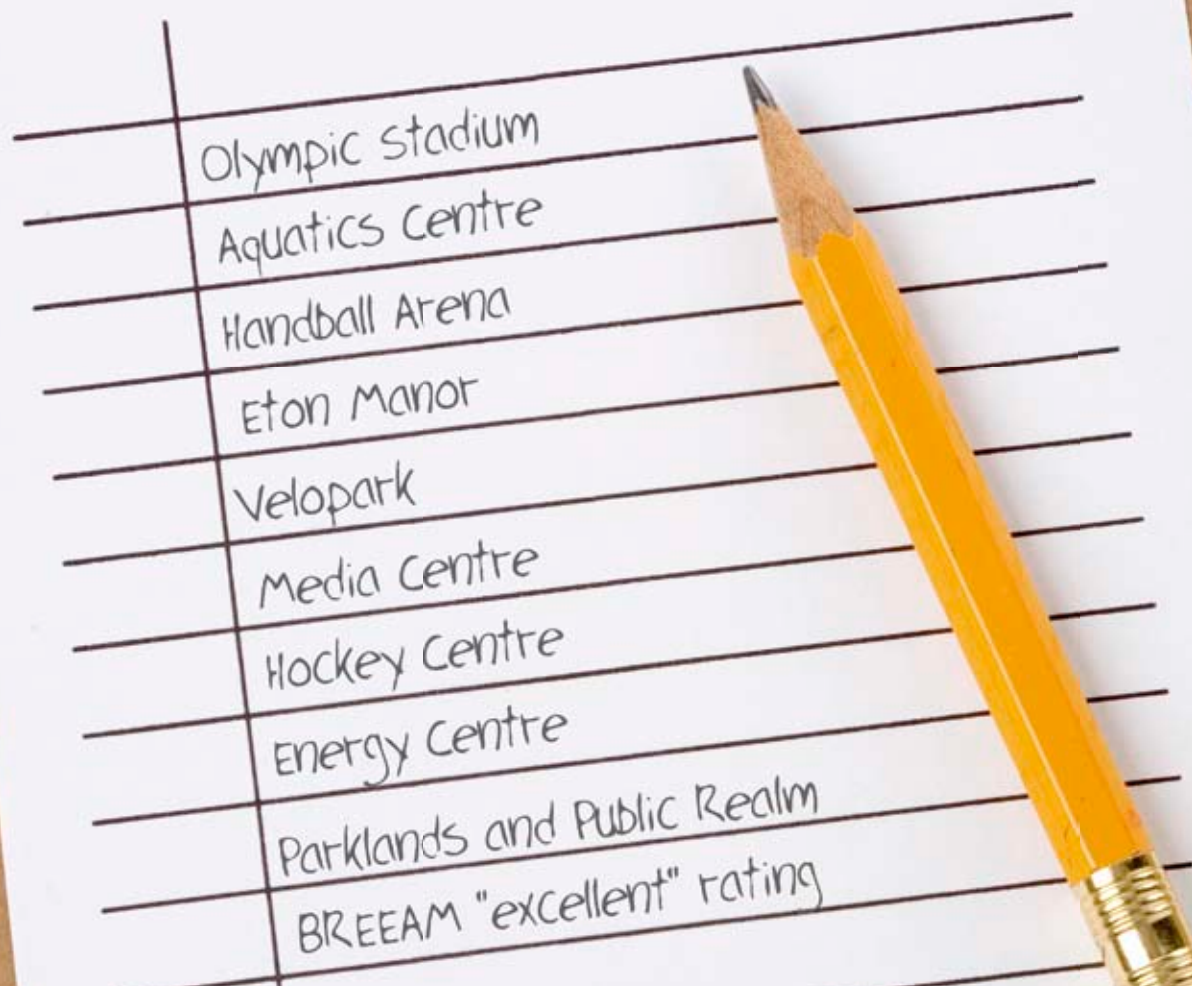 Olympic Stadium
Aquatics Centre
Handball Arena
Eton Manor
Velopark
Media Centre
Hockey Centre
Energy Centre
Parklands and Public Realm
BREEAM "excellent" rating